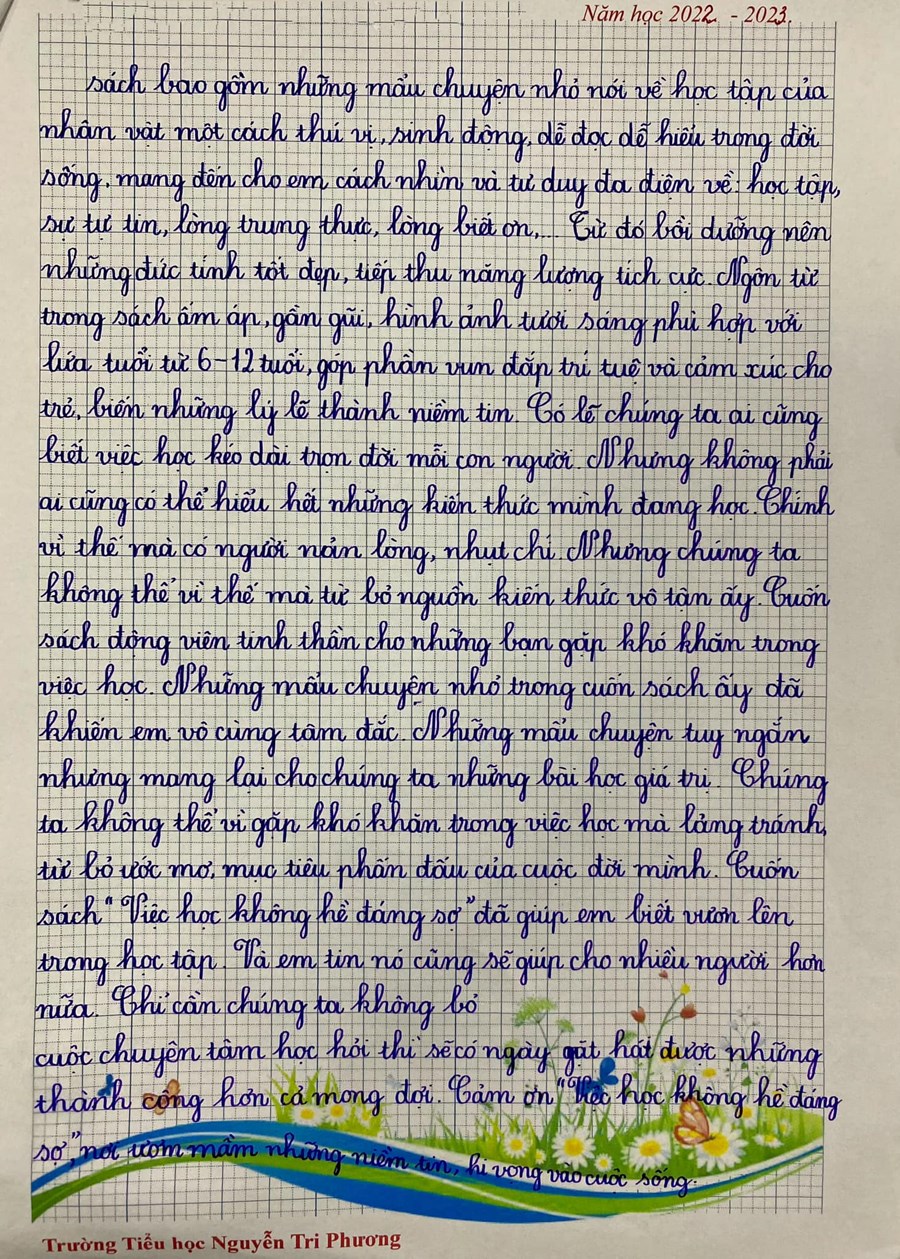 Năm học 2022 - 2023.
sách bao gồm những mẩu chuyện nhỏ nói về học tập của
nhân vật một cách thú vị, sinh động, dễ đọc dễ hiểu trong đời
sống, mang đến cho em cách nhìn và tư duy đa diện về: học tập,
sự tự tin, lòng trung thực, lòng biết ơn,... Từ đó bồi dưỡng nên
những đức tính tốt đẹp, tiếp thu năng lượng tích cực. Ngôn từ
trong sách ấm áp, gần gũi, hình ảnh tươi sáng phù hợp với
lứa tuổi từ 6-12 tuổi, góp phần vun đắp trí tuệ và cảm xúc cho
trẻ, biến những lý lẽ thành niềm tin. Có lẽ chúng ta ai cũng
biết việc học kéo dài trọn đời mỗi con người. Nhưng không phải
ai cũng có thể hiểu hết những kiến thức mình đang học. Chính
vì thế mà có người nản lòng, nhụt chí. Nhưng chúng ta
không thể vì thế mà từ bỏ nguồn kiến thức vô tận ấy. Cuốn
sách động viên tinh thần cho những bạn gặp khó khăn trong
việc học. Những mẩu chuyện nhỏ trong cuốn sách ấy đã
khiến em vô cùng tâm đắc. Những mẩu chuyện tuy ngắn
nhưng mang lại cho chúng ta những bài học giá trị. Chúng
ta không thể vì gặp khó khăn trong việc học mà lảng tránh,
từ bỏ ước mơ, mục tiêu phấn đấu của cuộc đời mình. Cuốn
sách "Việc học không hề đáng sợ" đã giúp em biết vươn lên
trong học tập. Và em tin nó cũng sẽ giúp cho nhiều người hơn
nữa. Chỉ cần chúng ta không bỏ
cuộc chuyên tâm học hỏi thì sẽ có ngày gặt hát được những
thành công hơn cả mong đợi. Cảm ơn "Việc học không hề đáng
sợ", nơi ươm mầm những niềm tin, hi vọng vào cuộc sống.
Trường Tiểu học Nguyễn Tri Phương